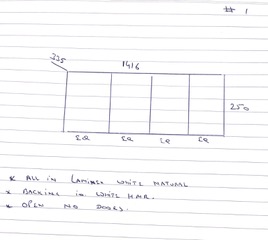 # 1
335
1416
250
EQ EQ EQ EQ
* ALL IN LAMINEX WHITE NATURAL
* BACKING IN WHITE HMR.
* OPEN NO DOORS.